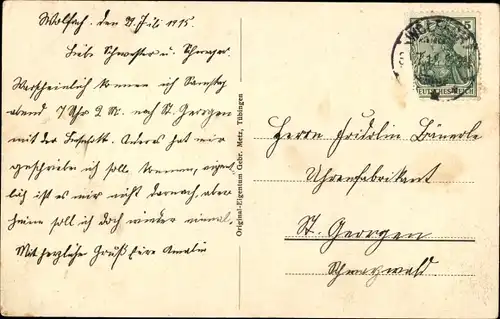 Wolfach, den 21. Juli 1915.
Liebe Schwester u. Schwager.
Warscheinlich komme ich Samstag
abend 7 Uhr 2 M. nach St. Georgen
mit der Josefitt. Andres hat mir
geschrieben ich soll kommen, eigent
lich ist es mir nicht darnach, aber
heime soll ich doch wieder einmal.
Mit herzliche Gruß Eure Amalie
Original-Eigentum Gebr. Metz, Tübingen
5
DEUTSCHES REICH
Herrn Fridolin Bäuerle
Uhrenfabrikant
St. Georgen
Schwarzwald.